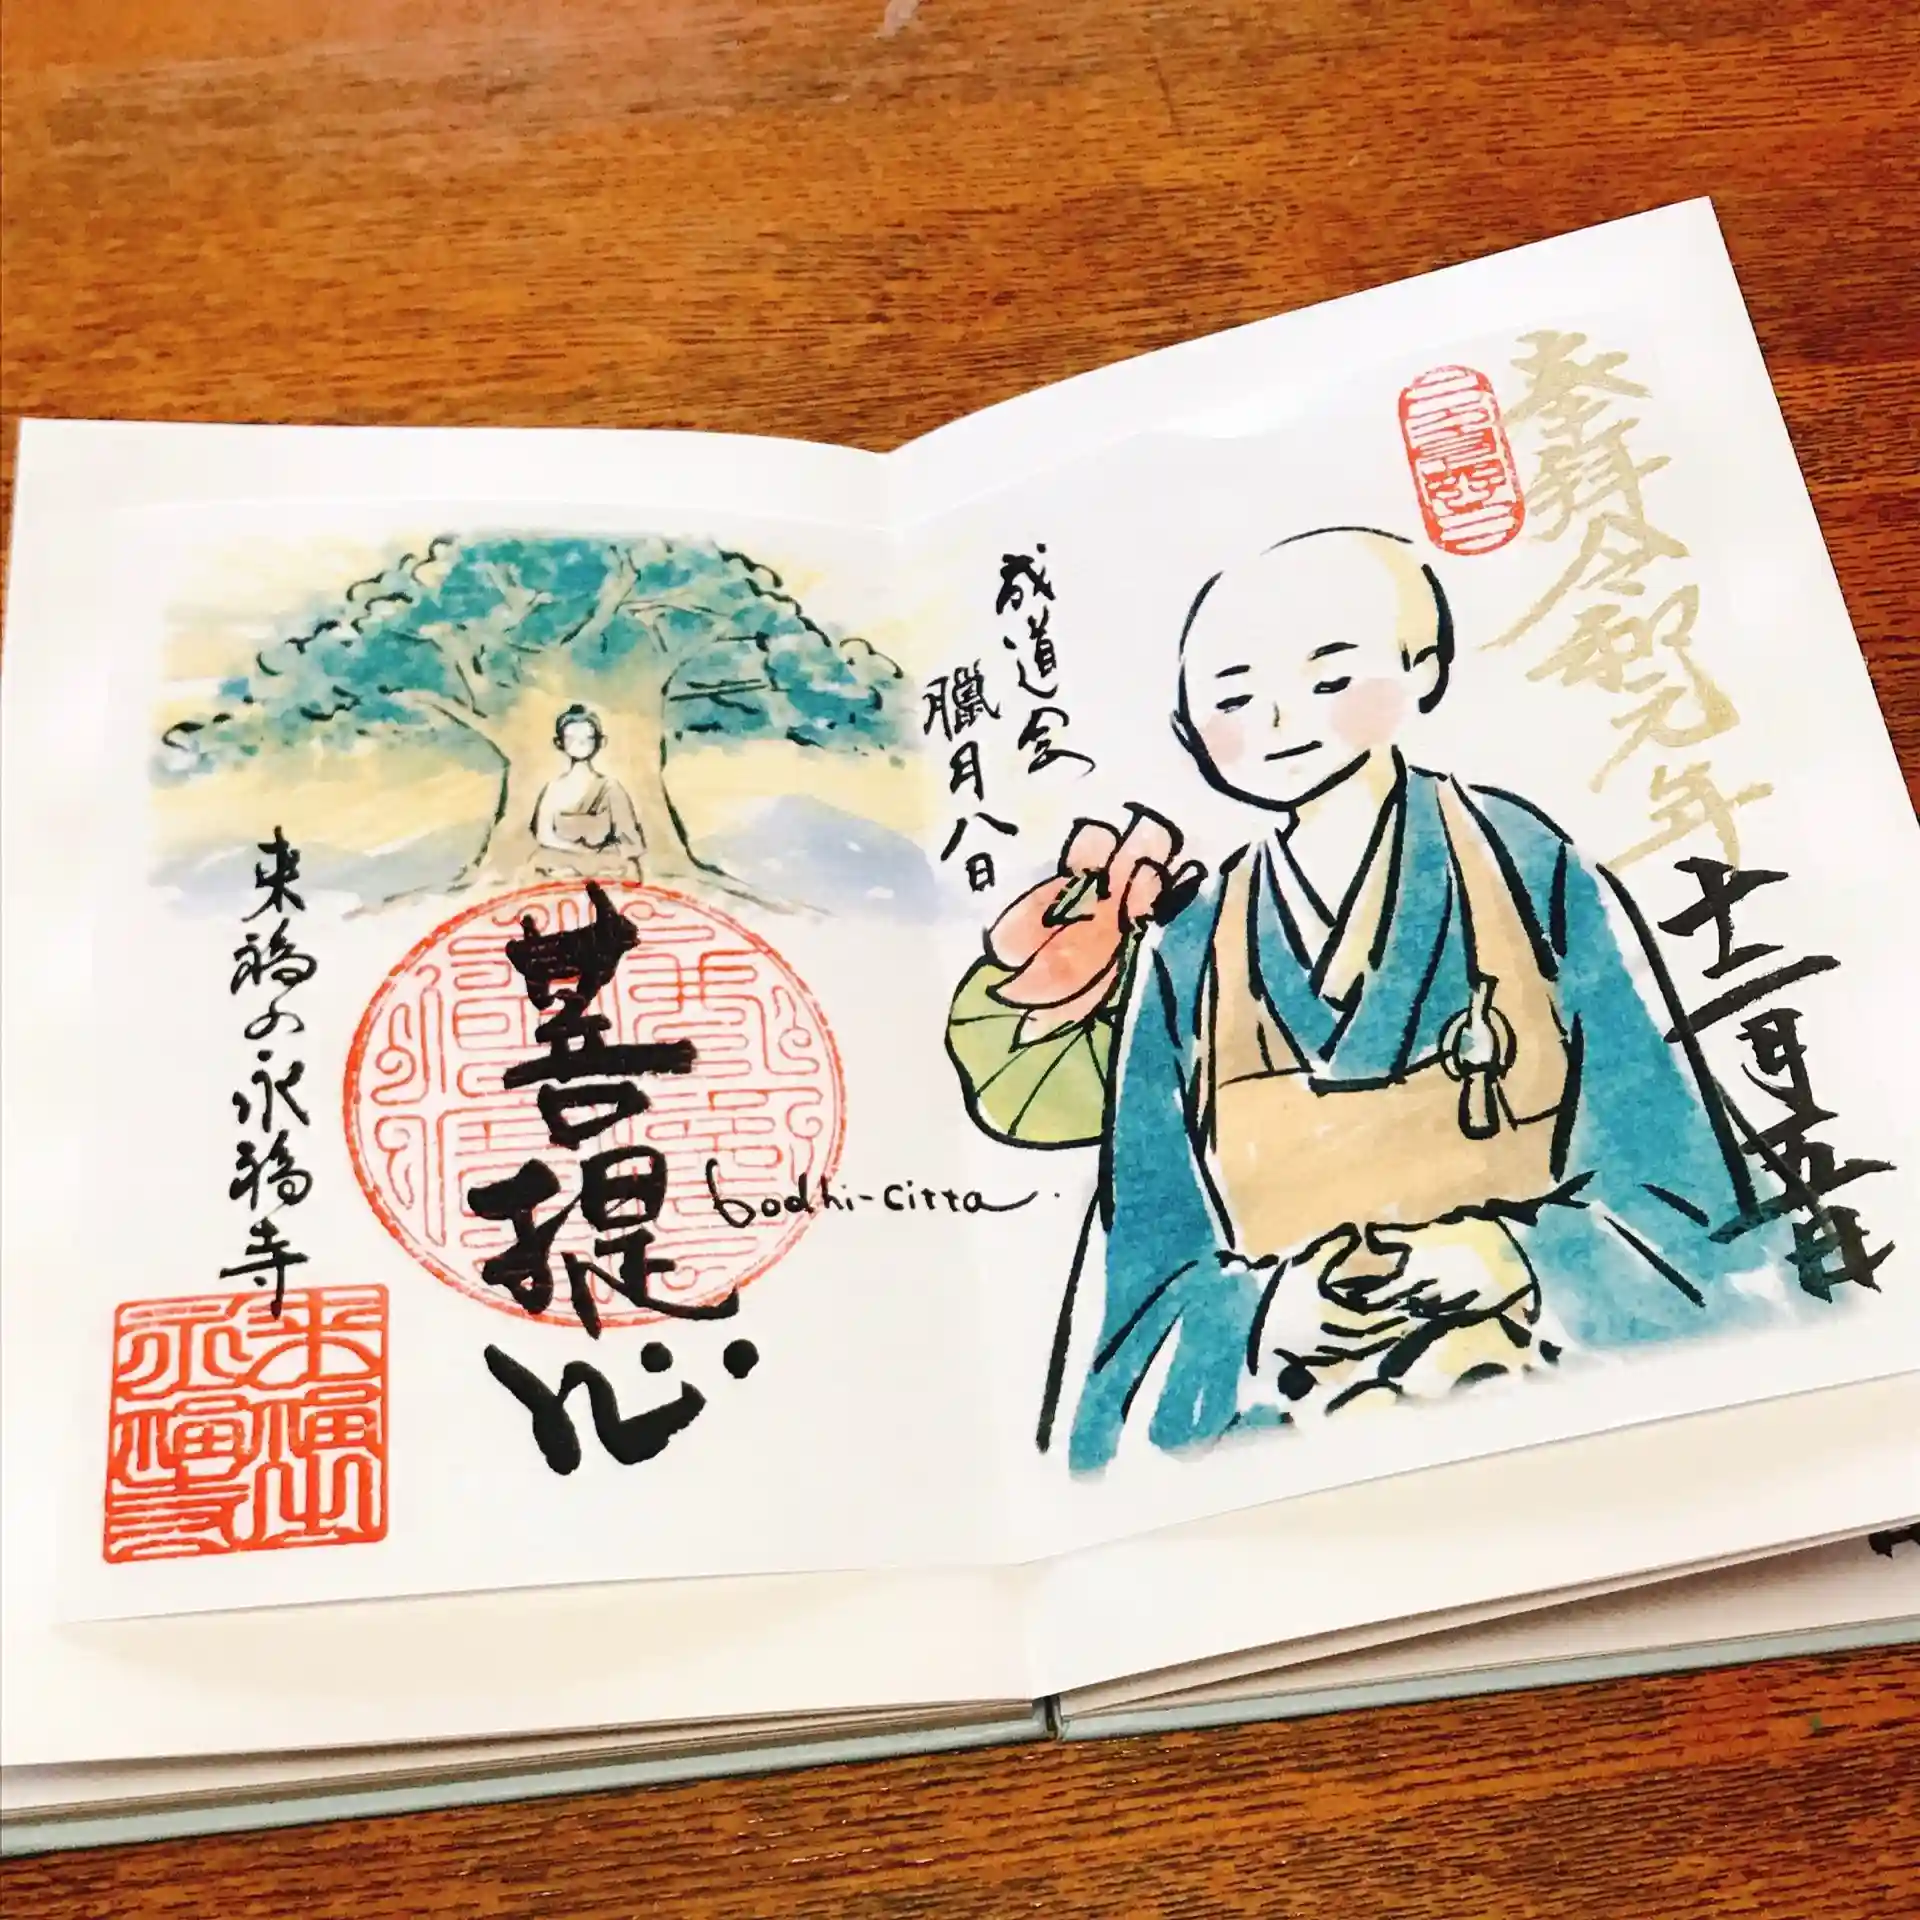 奉拝令和元年
十二月五日
成道会
臘月八日
菩提心
bodhi-citta.
来福の永福寺
来福山
永福寺